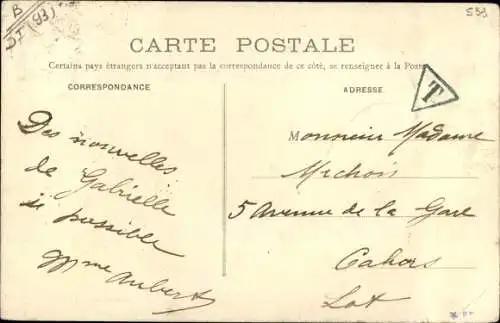 B
DJ (93)
539
CARTE POSTALE
Certains pays étrangers n'acceptant pas la correspondance de ce côté, se renseigner à la Poste
CORRESPONDANCE
Des nouvelles
de Gabrielle
si possible
Mme Aubert
ADRESSE
T
Monsieur Madame
Mechois
5 Avenue de la Gare
Cahors
Lot